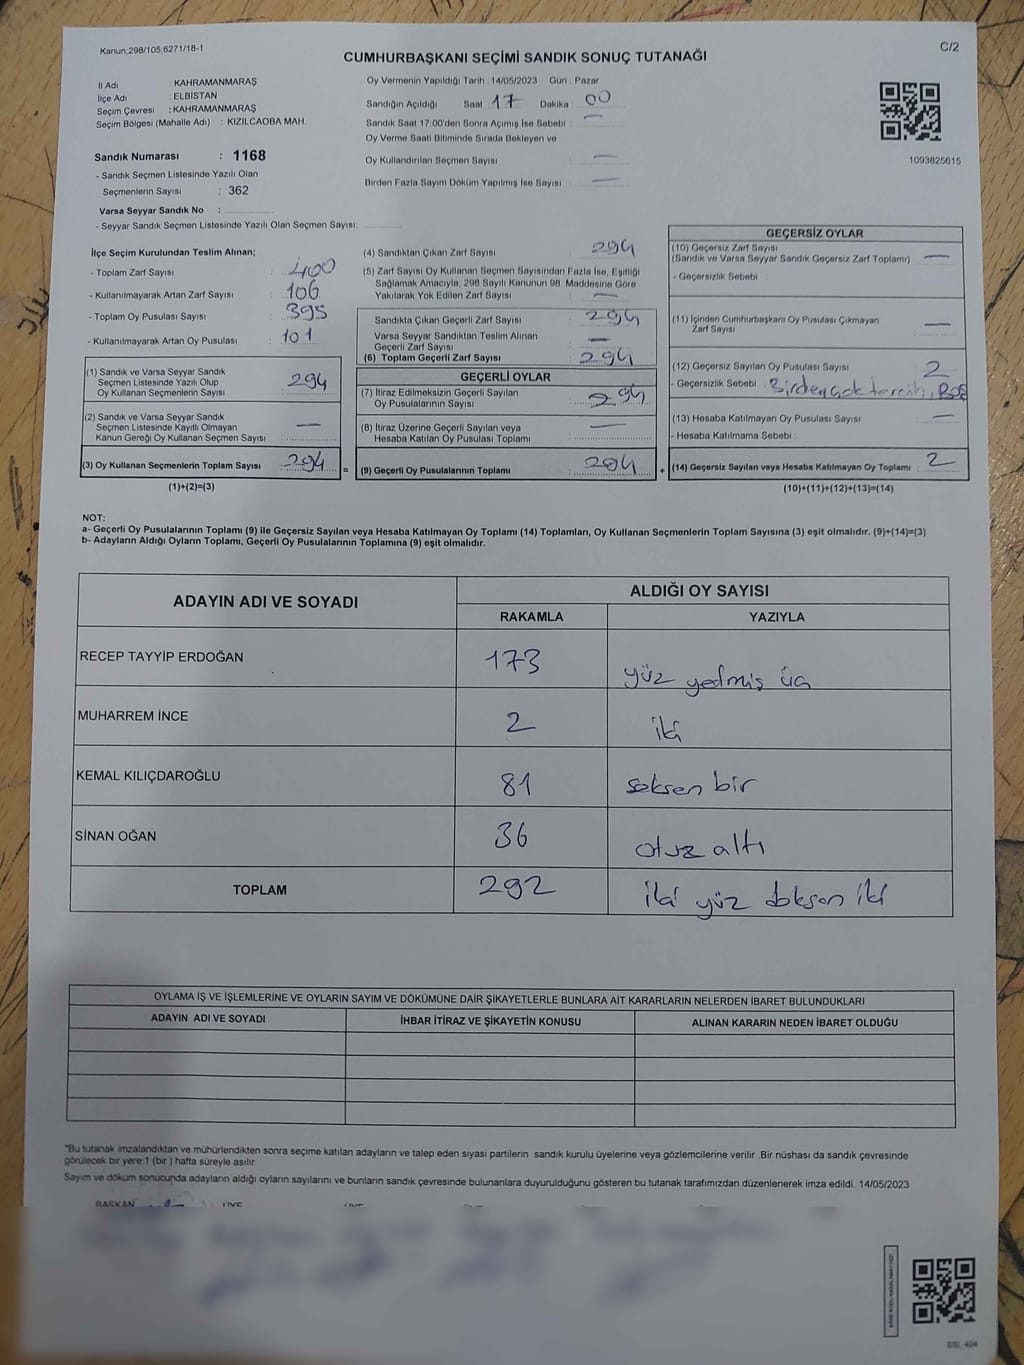 Kanun,298/105,6271/18-1
C/2
CUMHURBAŞKANI SEÇİMİ SANDIK SONUÇ TUTANAĞI
İl Adı : KAHRAMANMARAŞ
İlçe Adı : ELBİSTAN
Seçim Çevresi : KAHRAMANMARAŞ
Seçim Bölgesi (Mahalle Adı) : KIZILCAOBA MAH.
Sandık Numarası : 1168
- Sandık Seçmen Listesinde Yazılı Olan
Seçmenlerin Sayısı : 362
Varsa Seyyar Sandık No :
- Seyyar Sandık Seçmen Listesinde Yazılı Olan Seçmen Sayısı:
Oy Vermenin Yapıldığı Tarih : 14/05/2023 Gün : Pazar
Sandığın Açıldığı Saat : 17 Dakika : 00
Sandık Saat 17:00'den Sonra Açımış İse Sebebi : —
Oy Verme Saati Bitiminde Sırada Bekleyen ve
Oy Kullandırılan Seçmen Sayısı : —
Birden Fazla Sayım Döküm Yapılmış İse Sayısı : —
1093825615
İlçe Seçim Kurulundan Teslim Alınan;
- Toplam Zarf Sayısı : 400
- Kullanılmayarak Artan Zarf Sayısı : 106
- Toplam Oy Pusulası Sayısı : 395
- Kullanılmayarak Artan Oy Pusulası : 101
(1) Sandık ve Varsa Seyyar Sandık
Seçmen Listesinde Yazılı Olup
Oy Kullanan Seçmenlerin Sayısı : 294
(2) Sandık ve Varsa Seyyar Sandık
Seçmen Listesinde Kayıtlı Olmayan
Kanun Gereği Oy Kullanan Seçmen Sayısı : —
(3) Oy Kullanan Seçmenlerin Toplam Sayısı : 294 =
(1)+(2)=(3)
(4) Sandıktan Çıkan Zarf Sayısı : 294
(5) Zarf Sayısı Oy Kullanan Seçmen Sayısından Fazla İse, Eşitliği
Sağlamak Amacıyla, 298 Sayılı Kanunun 98. Maddesine Göre
Yakılarak Yok Edilen Zarf Sayısı : —
Sandıkta Çıkan Geçerli Zarf Sayısı : 294
Varsa Seyyar Sandıktan Teslim Alınan
Geçerli Zarf Sayısı : —
(6) Toplam Geçerli Zarf Sayısı : 294
GEÇERLİ OYLAR
(7) İtiraz Edilmeksizin Geçerli Sayılan
Oy Pusulalarının Sayısı : 294
(8) İtiraz Üzerine Geçerli Sayılan veya
Hesaba Katılan Oy Pusulası Toplamı : —
(9) Geçerli Oy Pusulalarının Toplamı : 294 +
GEÇERSİZ OYLAR
(10) Geçersiz Zarf Sayısı
(Sandık ve Varsa Seyyar Sandık Geçersiz Zarf Toplamı) : —
- Geçersizlik Sebebi :
(11) İçinden Cumhurbaşkanı Oy Pusulası Çıkmayan
Zarf Sayısı : —
(12) Geçersiz Sayılan Oy Pusulası Sayısı : 2
- Geçersizlik Sebebi : Birden çok tercih, Boş
(13) Hesaba Katılmayan Oy Pusulası Sayısı : —
- Hesaba Katılmama Sebebi :
(14) Geçersiz Sayılan veya Hesaba Katılmayan Oy Toplamı : 2
(10)+(11)+(12)+(13)=(14)
NOT:
a- Geçerli Oy Pusulalarının Toplamı (9) ile Geçersiz Sayılan veya Hesaba Katılmayan Oy Toplamı (14) Toplamları, Oy Kullanan Seçmenlerin Toplam Sayısına (3) eşit olmalıdır. (9)+(14)=(3)
b- Adayların Aldığı Oyların Toplamı, Geçerli Oy Pusulalarının Toplamına (9) eşit olmalıdır.
ADAYIN ADI VE SOYADI ALDIĞI OY SAYISI
RAKAMLA YAZIYLA
RECEP TAYYİP ERDOĞAN 173 yüz yedmiş üç
MUHARREM İNCE 2 iki
KEMAL KILIÇDAROĞLU 81 seksen bir
SİNAN OĞAN 36 otuz altı
TOPLAM 292 iki yüz doksan iki
OYLAMA İŞ VE İŞLEMLERİNE VE OYLARIN SAYIM VE DÖKÜMÜNE DAİR ŞİKAYETLERLE BUNLARA AİT KARARLARIN NELERDEN İBARET BULUNDUKLARI
ADAYIN ADI VE SOYADI İHBAR İTİRAZ VE ŞİKAYETİN KONUSU ALINAN KARARIN NEDEN İBARET OLDUĞU
"Bu tutanak imzalandıktan ve mühürlendikten sonra seçime katılan adayların ve talep eden siyasi partilerin sandık kurulu üyelerine veya gözlemcilerine verilir .Bir nüshası da sandık çevresinde
görülecek bir yere 1 (bir ) hafta süreyle asılır.
Sayım ve döküm sonucunda adayların aldığı oyların sayılarını ve bunların sandık çevresinde bulunanlara duyurulduğunu gösteren bu tutanak tarafımızdan düzenlenerek imza edildi. 14/05/2023
BAŞKAN ÜYE ÜYE